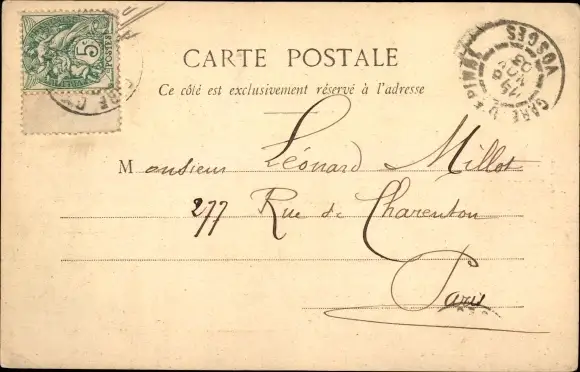 5
POSTES
CARTE POSTALE
Ce côté est exclusivement réservé à l'adresse
GARE D'EPINAL
VOSGES
03
Monsieur Léonard Millot
277 Rue de Charenton
Paris